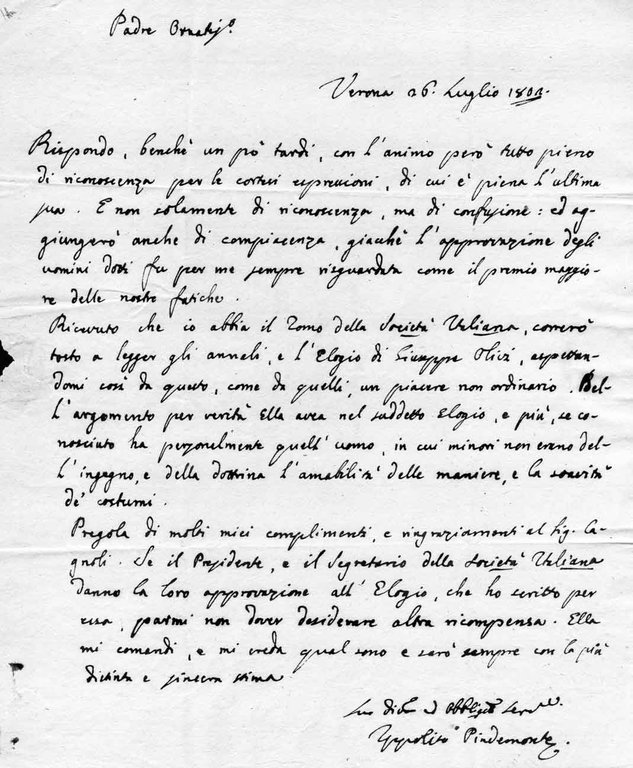 Padre Ornatiss.o
Verona 26. Luglio 1802.
Rispondo, benchè un pò tardi, con l'animo però tutto pieno
di riconoscenza per le cortesi espressioni, di cui è piena l'ultima
sua. E non solamente di riconoscenza, ma di confusione: ed ag-
giungerò anche di compiacenza, giacchè l'approvazione degli
uomini dotti fu per me sempre risguardata come il premio maggio-
re delle nostre fatiche.
Ricevuto che io abbia il Tomo della Società Italiana, correrò
tosto a legger gli annali, e l'Elogio di Giuseppe Olivi, aspettan-
domi così da questo, come da quelli, un piacere non ordinario. Bel-
l'argomento per verità Ella avea nel suddetto Elogio, e più, se co-
nosciuto ha personalmente quell'uomo, in cui minori non erano del-
l'ingegno, e della dottrina l'amabilità delle maniere, e la soavità
de' costumi.
Pregola di molti miei complimenti, e ringraziamenti al Sig. Ca-
gnoli. Se il Presidente, e il Segretario della Società Italiana
danno la loro approvazione all'Elogio, che ho scritto per
essa, parmi non dover desiderare altra ricompensa. Ella
mi comandi, e mi creda qual sono e sarò sempre con la più
distinta e sincera stima
Suo ed
Ippolito Pindemonte.